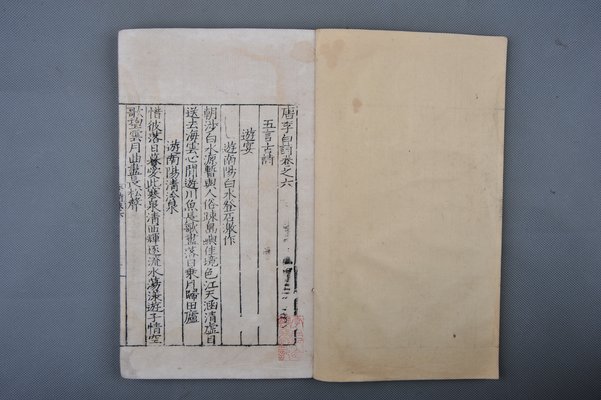 唐李白詩卷之六
五言古詩
遊宴
遊南陽白水登石激作
朝涉白水源暫與人俗疎島嶼佳境色江天涵清虛目
送去海雲心閒遊川魚長歌盡落日乘月歸田廬
遊南陽清泠泉
惜彼落日暮愛此寒泉清西輝逐流水蕩漾遊子情空
歌望雲月曲盡長松聲